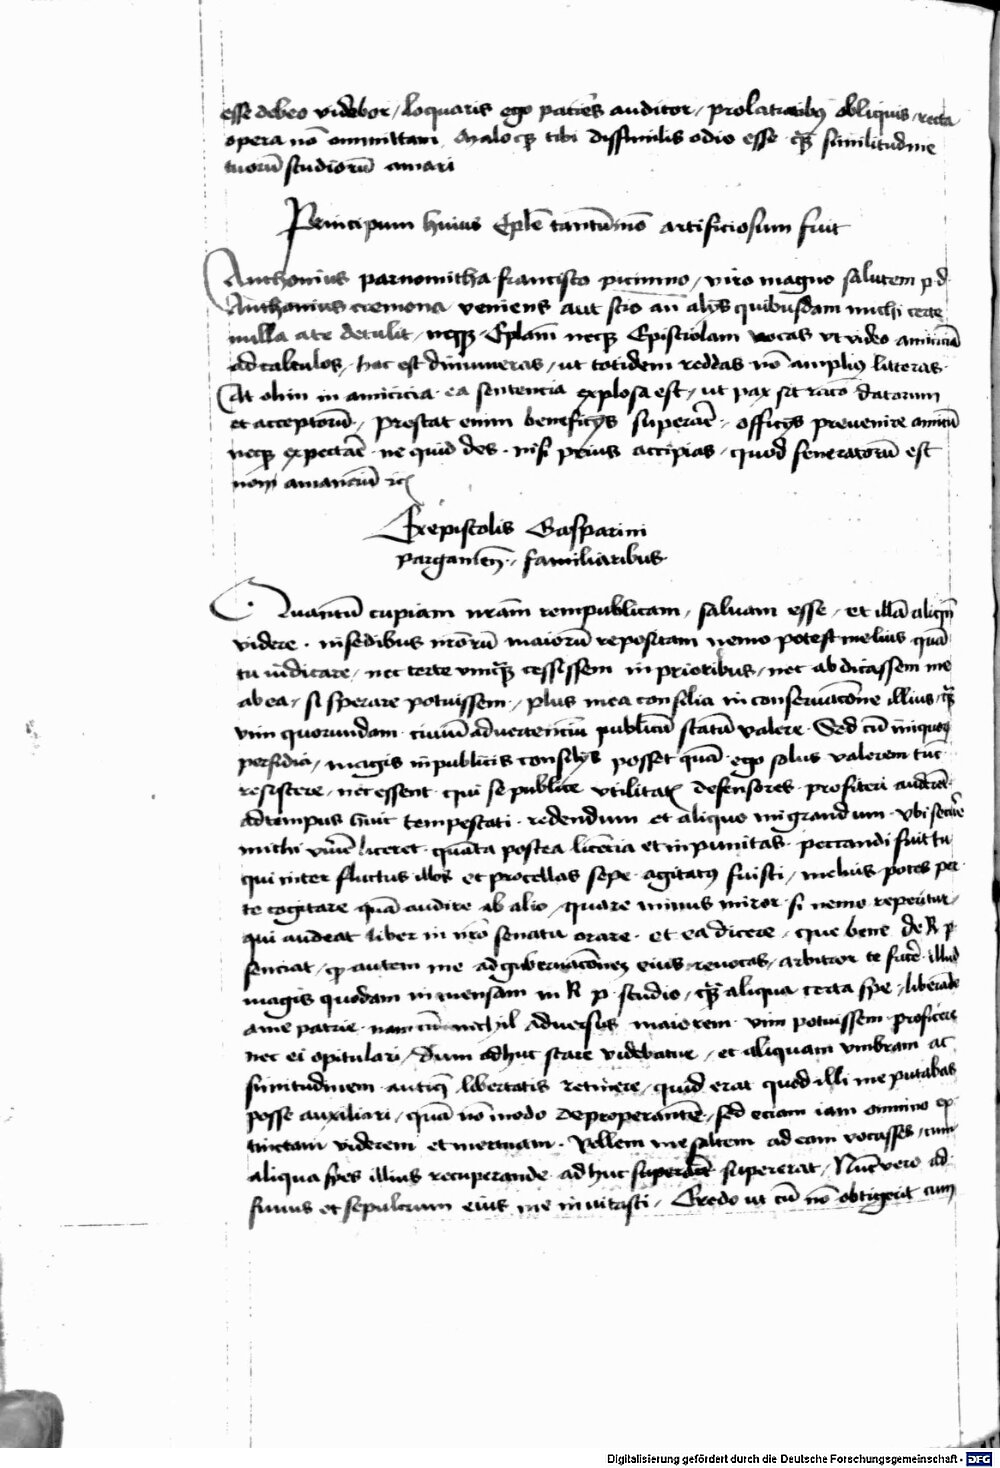 esse debeo videbor / loquaris ego patiēs auditor / prolatioībꝫ obliquis / recta
opera nō ommittam Maloqꝫ tibi dissimilis odio esse qꝫ̄ similitudine
tuorū studiorū amari
Principium huius Eplē tantūmō artificiosum fuit
Anthonius parnomitha francisco picinino / viro magno salutem p d
Anthonius cremona veniens aut scio an̄ alijs quibusdam michi certe
nulla a te detulit / neqꝫ Eplam̄ neqꝫ Epistolam vocas vt video amiciciā
ad calculos / hoc est dinumeras / ut totidem reddas nō amplius litteras
At olim in amicicia ea sentencia explosa est / ut par sit racō datorum
et acceptorū / prestat enim beneficijs superāē / officijs prevenire amicū
necqꝫ expectāē ne quid des nisi prius accipias / quod feneratorū est
non amanciū
Ex epistolis Gasparini
pargamen̄ / familiaribus
Quantū cupiam nr̄am rempublicam / saluam esse / et illā aliqn̄
videre in sedibus nr̄orū maiorū repositam nemo potest melius quā
tu iudicare / nec certe vmqꝫ̄ cessissem in prioribus / nec abdicassem me
ab ea / si sperare potuissem / plus mea consilia in conseruacōne illius / qꝫ̄
vim quorundam ciuiū aduertenciū publicū statū valere Sed cū iniquorū
perfidia / magis in publicis consilijs posset quā ego solus valerem tūc
resistere / nec essent qui se publice vtilitatis defensores profiteri auderēt
ad tempus huic tempestati redendum et aliquo migrandum vbi secure
michi viuē liceret quāta postea licēcia et inpunitas peccandi fuit tu
qui inter fluctus illos et procellas sepe agitatus fuisti / melius potes per
te cogitare quā audire ab alio / quare minus miror si nemo reperitur
qui audeat liber in nr̄o senatu orare et ea dicere / que bene de R p
senciat / qp autem me ad gubernacōnem eius reuocas / arbitror te facē illud
magis quodam in mensam in R p studio / qꝫ̄ aliqua certa spe / liberāde
a me patrie nam cū nichil aduersus maiorem vim potuissem proficere
nec ei opitulari / dum adhuc stare videbatur / et aliquam vmbram ac
similitudinem antiqꝫ libertatis retinere / quid erat quod illi me putabas
posse auxiliari / quā nō modo deproperantē / sed eciam iam omnino ex
tinctam viderem et mortuam Vellem me saltem ad eam vocasses / cum
aliqua spes illius recuperande adhuc supererat / Nūc vero ad
funus et sepulcrum eius me inuitasti / Credo ut cū nō obtigerit cum
Digitalisierung gefördert durch die Deutsche Forschungsgemeinschaft - DFG